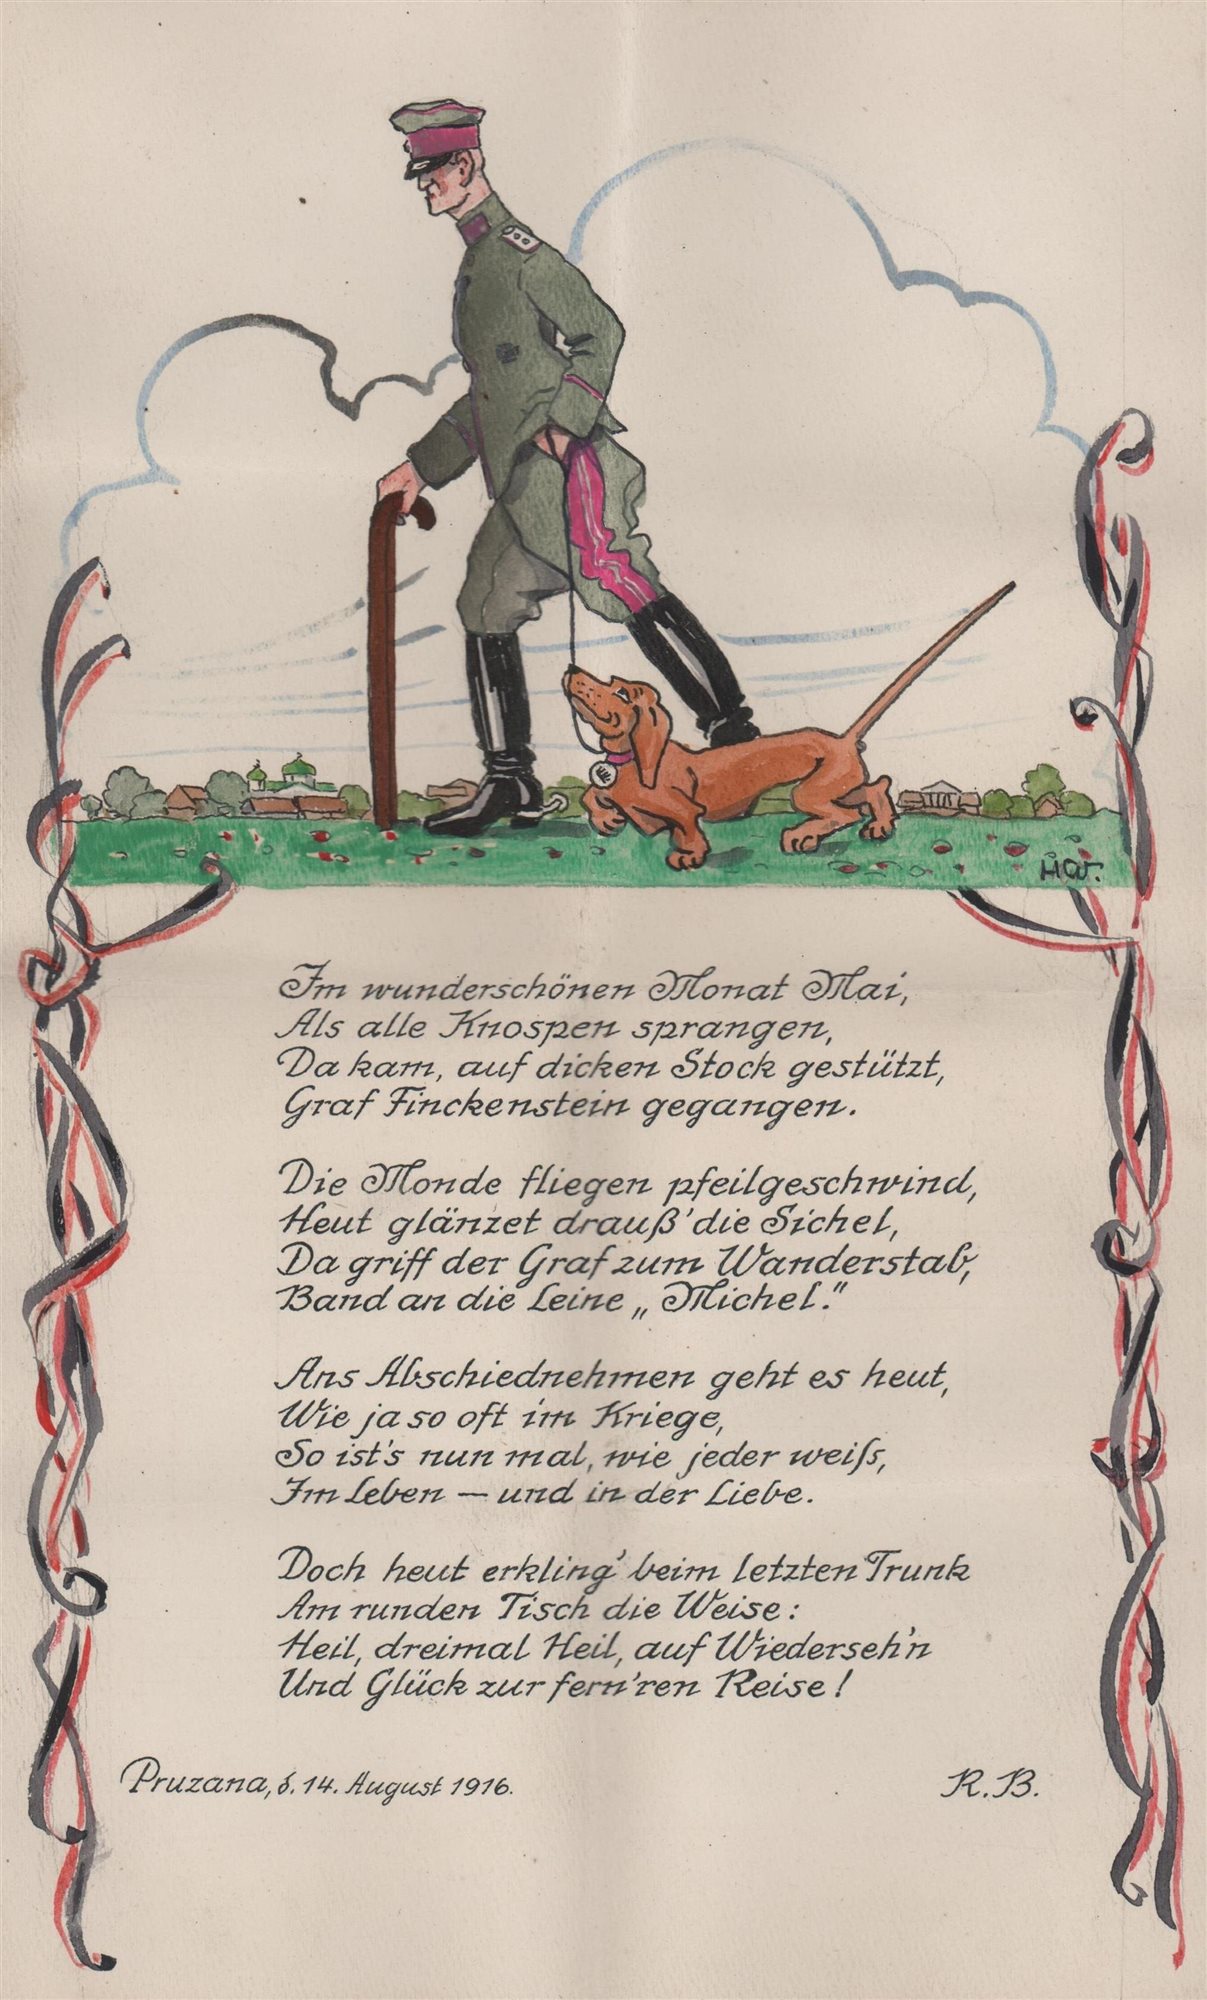 HW.
Im wunderschönen Monat Mai,
Als alle Knospen sprangen,
Da kam, auf dicken Stock gestützt,
Graf Finckenstein gegangen.
Die Monde fliegen pfeilgeschwind,
Heut glänzet drauß' die Sichel,
Da griff der Graf zum Wanderstab,
Band an die Leine „Michel."
Ans Abschiednehmen geht es heut,
Wie ja so oft im Kriege,
So ist's nun mal, wie jeder weiſs,
Im Leben — und in der Liebe.
Doch heut erkling' beim letzten Trunk
Am runden Tisch die Weise:
Heil, dreimal Heil, auf Wiederseh'n
Und Glück zur fern'ren Reise!
Pruzana, d. 14. August 1916.
R.B.